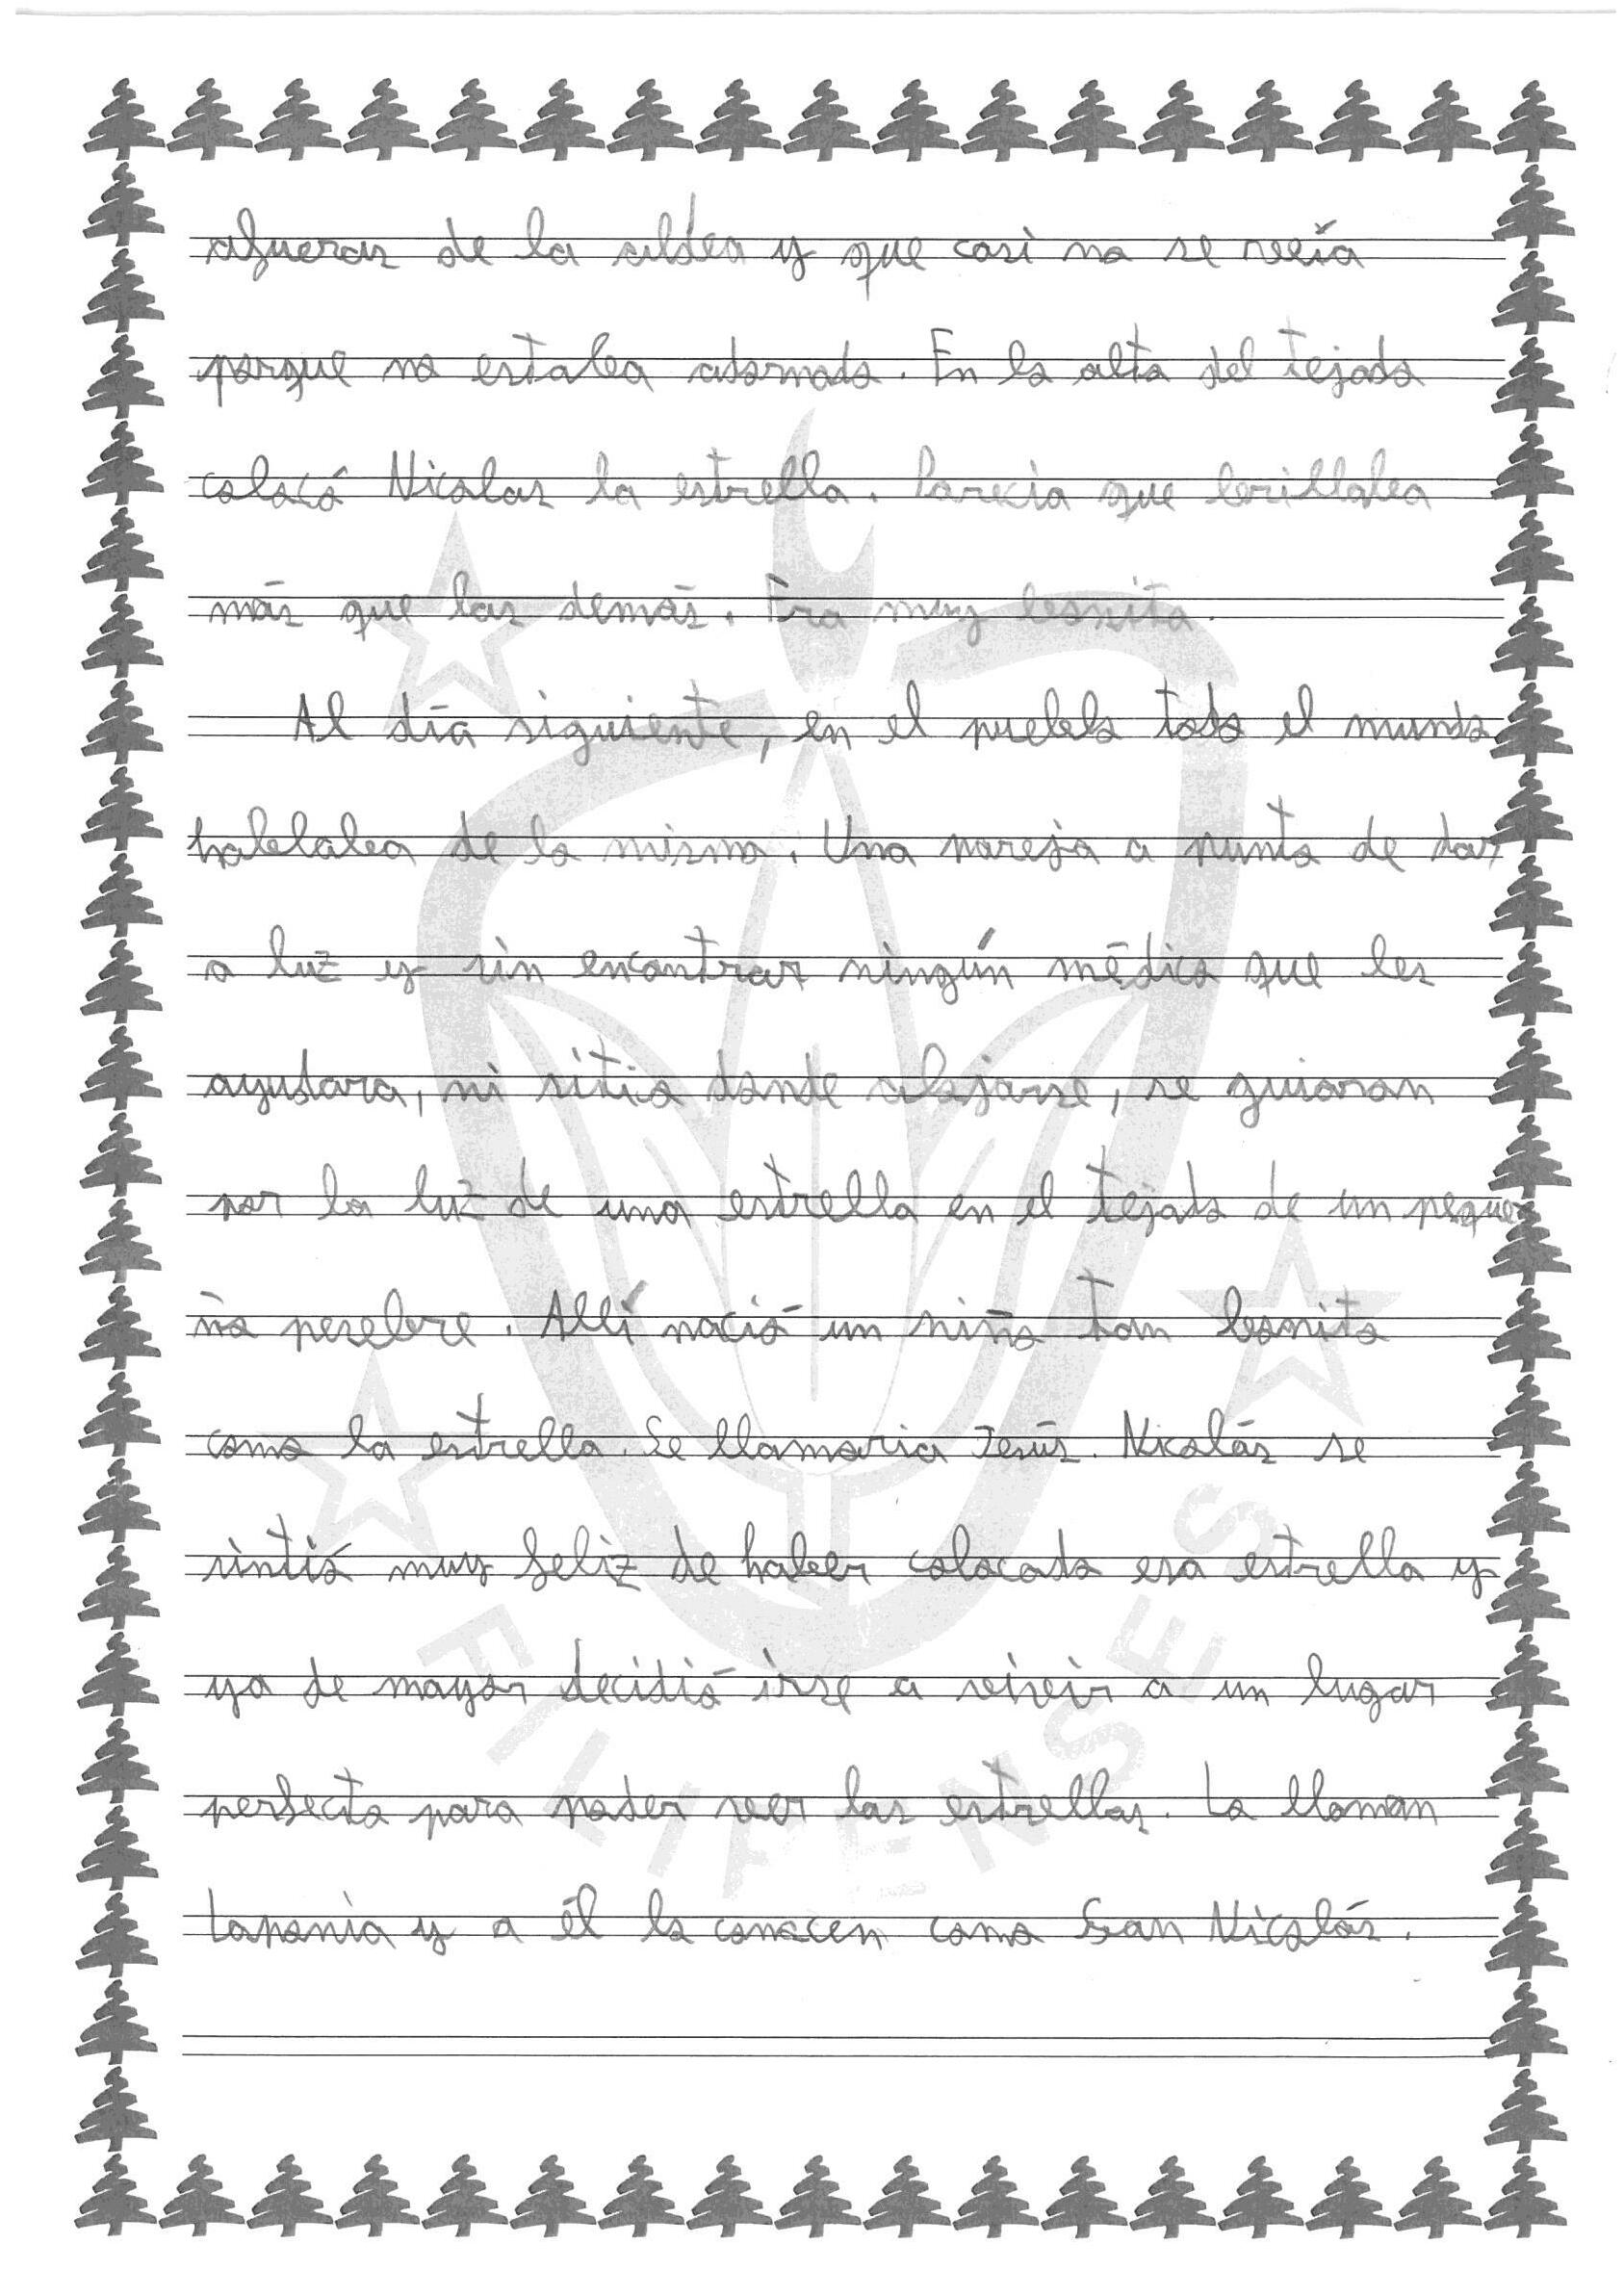 afueras de la aldea y que casi no se veía
porque no estaba adornado. En lo alto del tejado
colocó Nicolas la estrella. Parecía que brillaba
más que las demás. Era muy bonita.
Al día siguiente, en el pueblo todo el mundo
hablaba de lo mismo. Una pareja a punto de dar
a luz y sin encontrar ningún médico que les
ayudara, ni sitio donde alojarse, se guiaron
por la luz de una estrella en el tejado de un peque
ño pesebre. Allí nació un niño tan bonito
como la estrella. Se llamaria Jesús. Nicolás se
sintió muy feliz de haber colocado esa estrella y
ya de mayor decidió irse a vivir a un lugar
perfecto para poder ver las estrellas. Lo llaman
Laponia y a él lo conocen como San Nicolás.
FILIPENSES